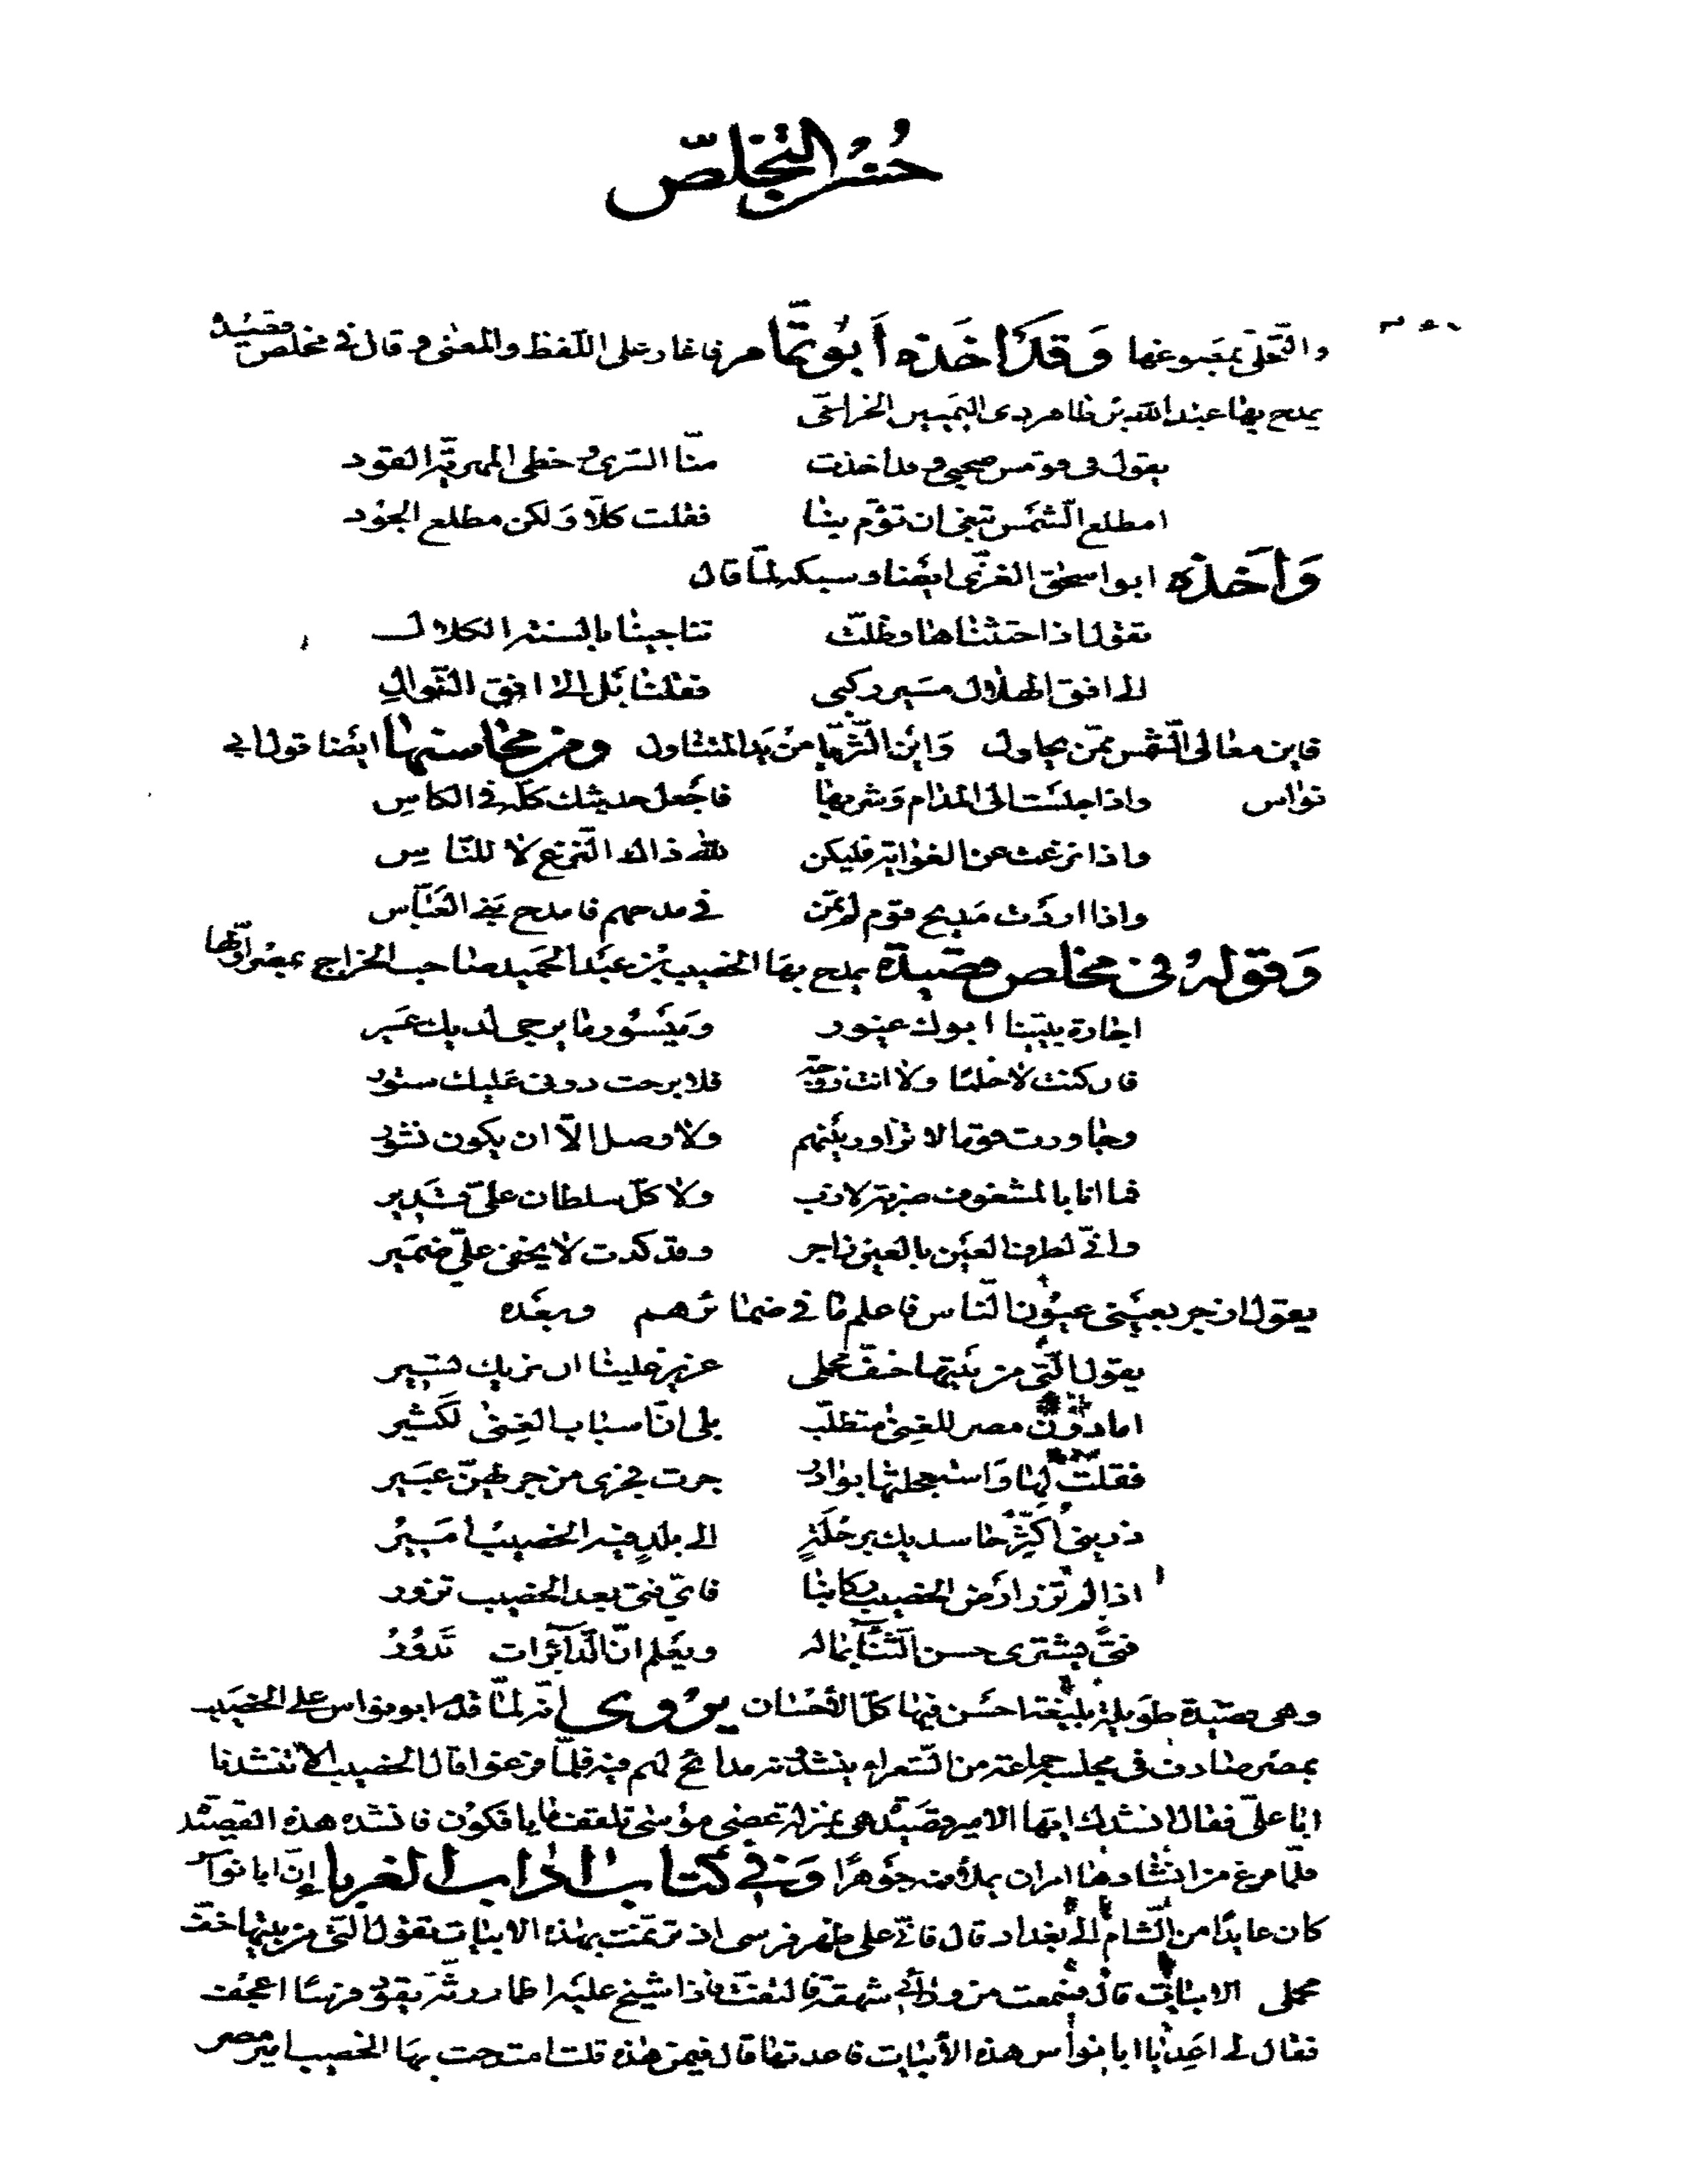 حُسْنُ التخلّص
والتّحلّي بمصوغها وَقَد اَخَذه أبُو تمّام فاغار على اللّفظ والمعنى وقال في مخلص قصيدة
يمدح بها عبد الله بن طاهر ذي اليمينين الخزاعي
يقول في قومس صحبي وقد اخذت منّا السّرى وخطى المهرية القود
امطلع الشّمس تبغي ان تؤم بنا فقلت كلاّ وَلكن مطلع الجود
وَاَخَذه ابو اسحق الغزّي ايضا وسبكه لمّا قال
تقول اذا حثثناها وظلّت تناجينا بالسنة الكلال
الى افق الهلال مسير ركبي فقلنا بَل الى افق النّوال
فاين معالي الشّمس ممّن يحاول وَايْن الثّريّا من يَد المتناول ومن محاسنها ايضا قول ابي
نواس واذا جلست الى المدام وَشربها فاجعل حديثك كلّه في الكاس
واذا نزعت عن الغواية فليكن لله ذاك النّزع لا للنّاس
واذا اردت مَديح قوم لم تمن في مدحهم فامدح بَني العَبّاس
وَقولهُ في مخلص قصيدة يمدح بها الخصيب بْن عبد الحميد صاحب الخراج بمصر اوّلها
اجارة بيتينا ابوك غيور وَمَيْسُور ما يرجى لديك عَسير
فان كنت لا خلما ولا انت زوجة فلا برحت دوني عَليك ستور
وجاورت قوما لا تزاور بينهم ولا وصل الاّ ان يكون نشور
فما انا بالمشغوف ضربة لازب ولا كلّ سلطان عليّ قَدير
وانّي لطرف العَين بالعين زاجر وقد كدت لا يخفى عليّ ضمَير
يقول ازجر بعيني عيُون النّاس فاعلم ما في ضمائرهم وبعَده
يقول الّتي من بَيتها خفّ محملي عزيز علينا ان نريك تسير
اما دوُن مصر للغِنى متطلّب بلى انّ اسباب الغِنى لكَثير
فقلت لها وَاستعجلتها بوادر جرت فجرى من جريهنّ عبَير
ذريني اُكثّر حاسديك برحْلَةٍ الى بلدٍ فيه الخصيبُ اَميرُ
اذا لم تزر ارض الخصيب ركابنا فايّ فتى بعد الخصيب تزور
فتىً يشتري حسن الثّناء بماله ويعَلم انّ الدّآئرات تَدوُرُ
وهي قصيدة طويلة بليغة احسَن فيها كلّ الاحْسان يرْوى انّه لمّا قدم ابو نواس على الخصَيب
بمصر صادف في مجلسه جماعة من الشّعراء ينشدونه مدائح لهم فيه فلمّا فرغوا قال الخصيب الا تنشدنا
ابا عليّ فقال انشدك ايّها الامير قصَيدة هي بمنزلة عصى مؤسى تلقف ما يافكوُن فانشده هذه القصيدة
فلمّا فرغ من انشادها امر ان يملأ فمه جوْهرًا وَفي كتاب اداب الغرباء إنّ ابا نواس
كان عايدًا من الشّام الى بغداد قال فانّي على ظهر فرسي اذ ترنّمت بهذه الابيات تقول الّتي من بيتها خفّ
محملي الابيات قال فسمعت من ورائي شهقة فالتفتّ فاذا شيخ عليه اطمار رثّة يقود فرسًا اعجف
فقال لي اَعِد يا ابا نواُس هذه الأبيات فاعدتها قال فيمن هذه قلت امتدحت بها الخصيب امير مصر